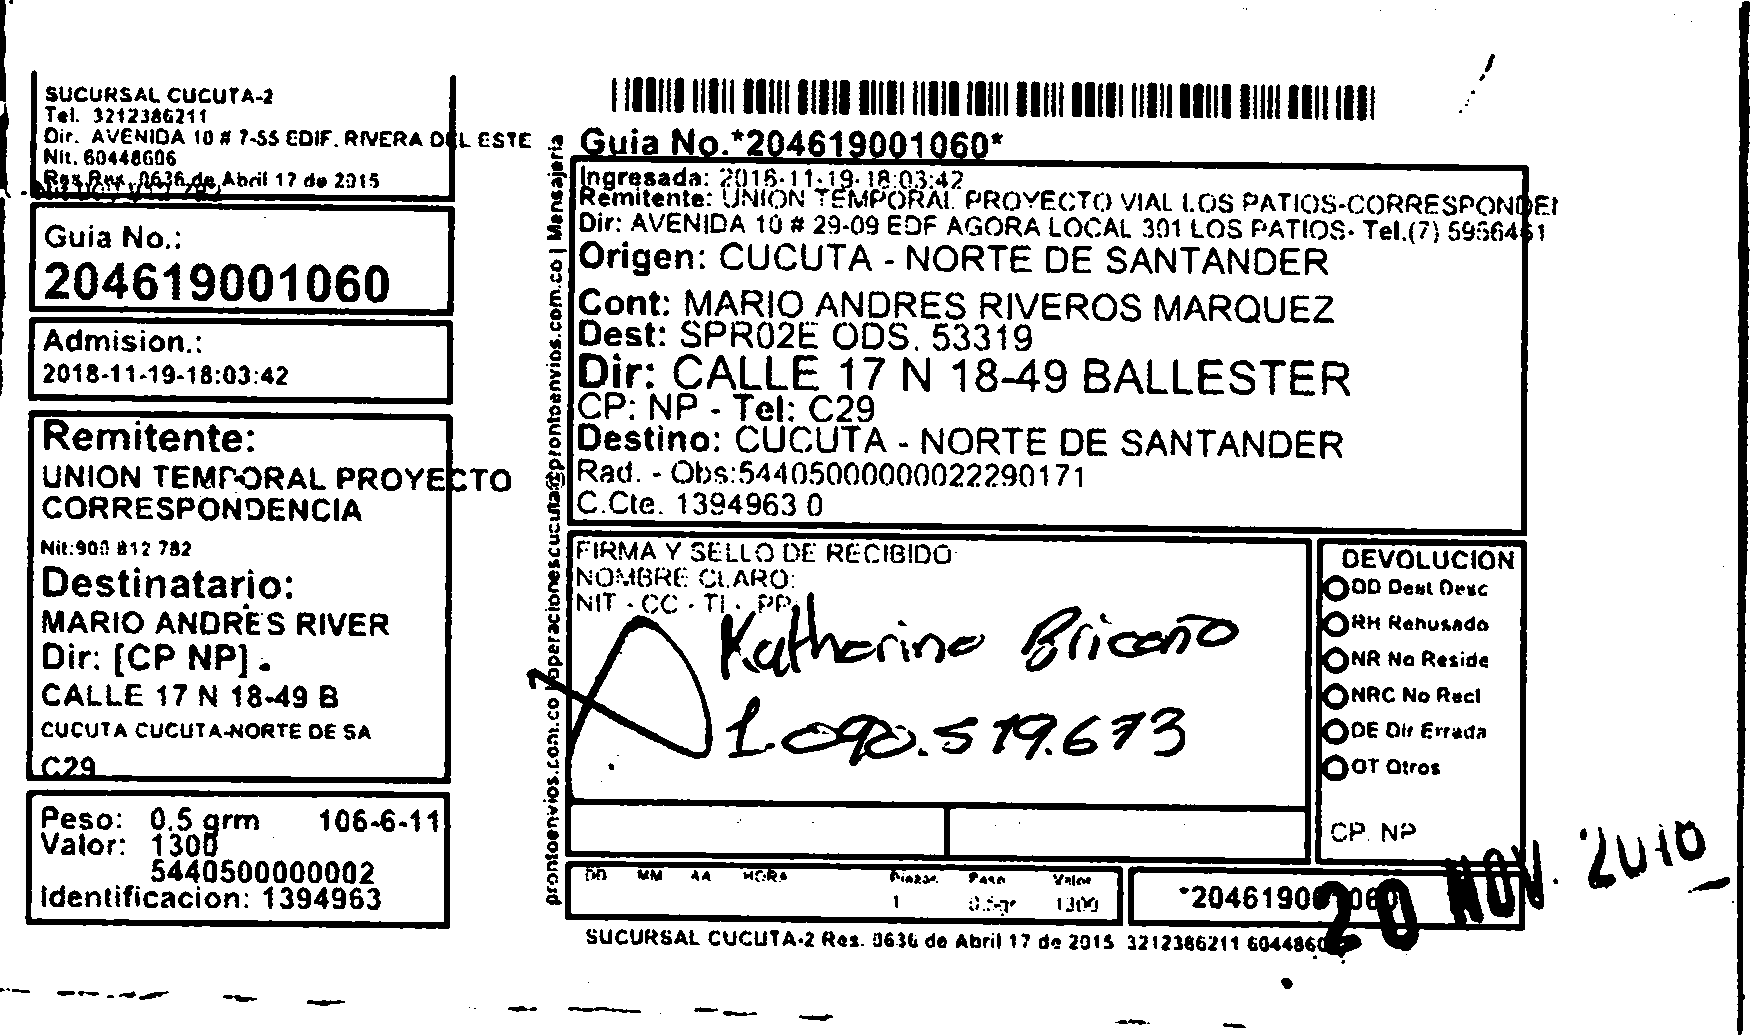 SUCURSAL CUCUTA-2
Tel. 3212386211
Dir. AVENIDA 10 # 7-55 EDIF. RIVERA DEL ESTE
Nit. 60448606
Res.Rex. 0636 de Abril 17 de 2015
Guia No.:
204619001060
Admision.:
2018-11-19-18:03:42
Remitente:
UNION TEMPORAL PROYECTO
CORRESPONDENCIA
Nit:900 812 782
Destinatario:
MARIO ANDRES RIVER
Dir: [CP NP] .
CALLE 17 N 18-49 B
CUCUTA CUCUTA-NORTE DE SA
C29
Peso: 0.5 grm 106-6-11
Valor: 1300
5440500000002
Identificacion: 1394963
prontoenvios.com.co | operacionescucuta@prontoenvios.com.co | Mensajeria
Guia No.*204619001060*
Ingresada: 2018-11-19-18:03:42
Remitente: UNION TEMPORAL PROYECTO VIAL LOS PATIOS-CORRESPONDEN
Dir: AVENIDA 10 # 29-09 EDF AGORA LOCAL 301 LOS PATIOS- Tel.(7) 5956461
Origen: CUCUTA - NORTE DE SANTANDER
Cont: MARIO ANDRES RIVEROS MARQUEZ
Dest: SPR02E ODS. 53319
Dir: CALLE 17 N 18-49 BALLESTER
CP: NP - Tel: C29
Destino: CUCUTA - NORTE DE SANTANDER
Rad. - Obs:544050000000022290171
C.Cte. 1394963 0
FIRMA Y SELLO DE RECIBIDO
NOMBRE CLARO:
NIT - CC - TI - PP
Katherine Briceño
1.090.519.673
DEVOLUCION
DD Dest Desc
RH Rehusado
NR No Reside
NRC No Recl
DE Dir Errada
OT Otros
CP. NP
DD MM AA HORA Piezas Peso Valor
1 0.5gr 1300
*204619001060
20 NOV. 2018
SUCURSAL CUCUTA-2 Res. 0636 de Abril 17 de 2015 3212386211 604486